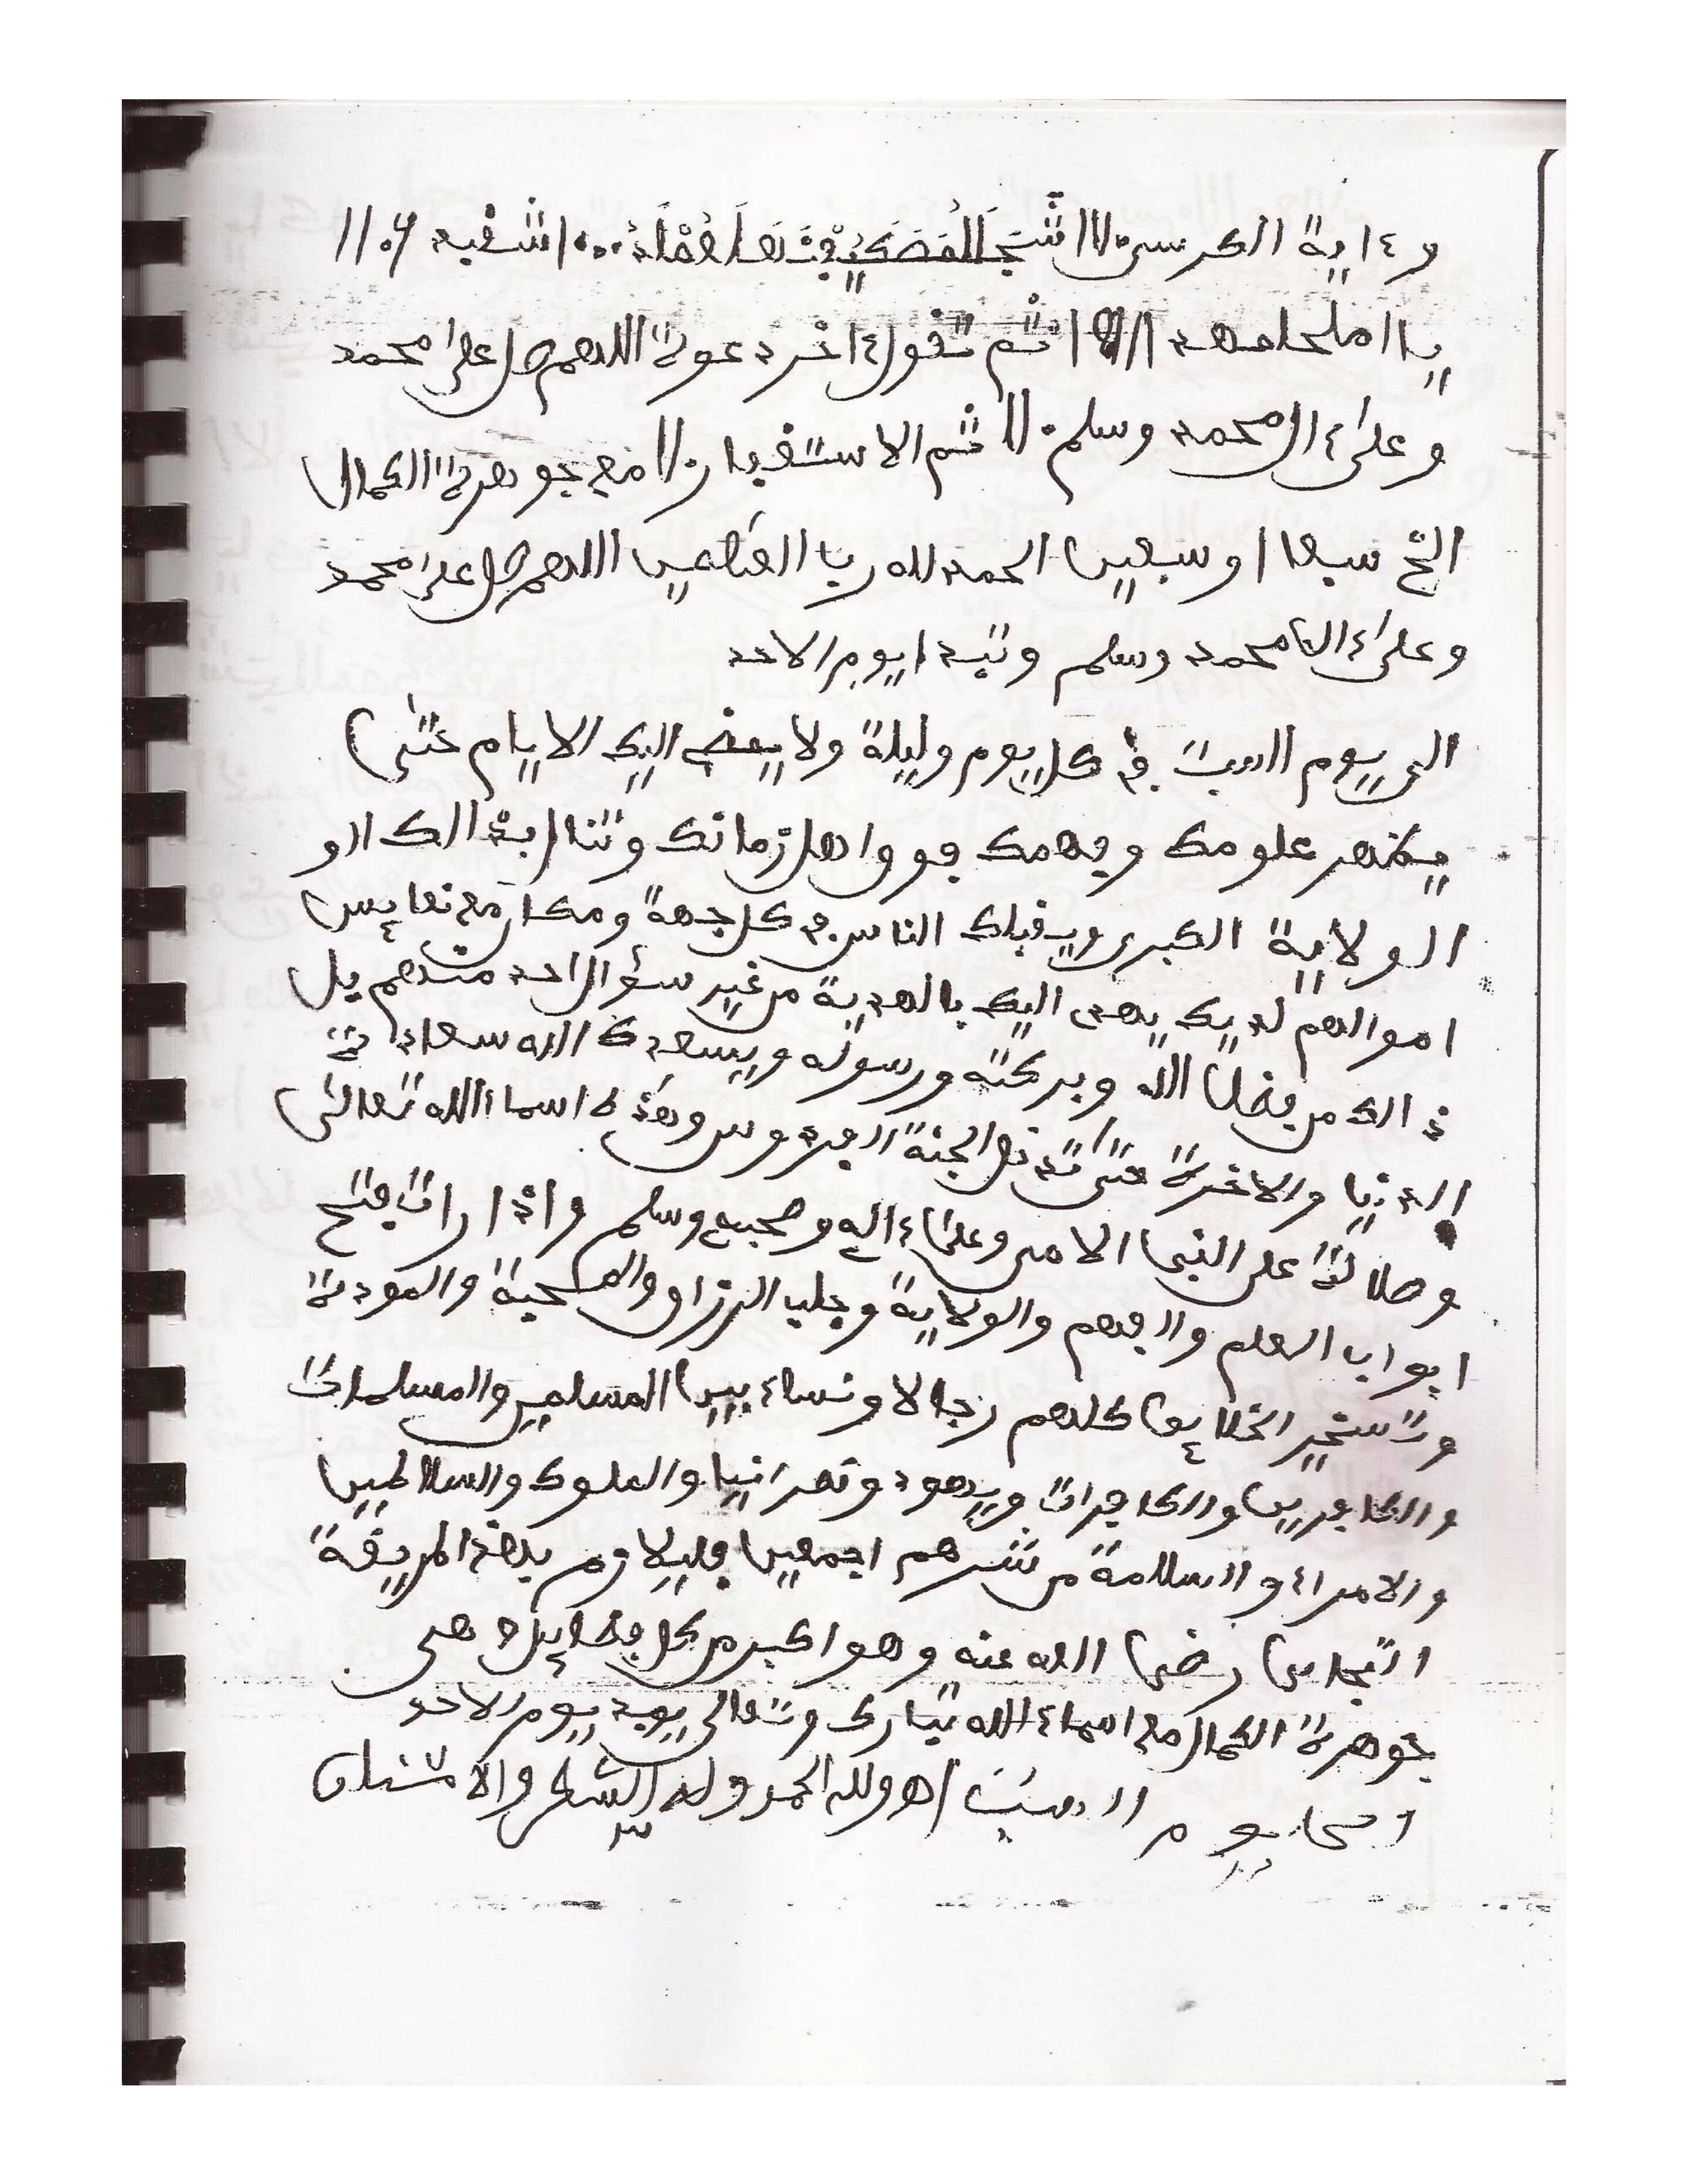 وءاية الكرسي اا
يا ثم تقول ءاخر دعوة اللهم صل على محمد
وعلىءال محمد وسلم اا ثم الاستغفار اا مع جوهرة الكمال
الخ سبعا او سبعين الحمد لله رب العلمين اللهم صل على محمد
وعلىءال محمد وسلم وتبدا يوم الاحد
الى يوم السبت في كل يوم وليلة ولا يمضى اليك الايام حتى
يظهر علومك وفهمك فوق اهل زمانك وتنال بذالك او
الولاية الكبرى ويقبلك الناس في كل جهة ومكان مع نفايس
اموالهم لديك يهدى اليك بالهدية من غير سؤال احد منهم بل
ذالك من فضل الله وبركته ورسوله ويسعدك الله سعادة
الدنيا والاخرة حتى تدخل الجنة الفردوس وهذه اسماء الله تعالى
وصلاة على النبي الامى وعلىءاله وصحبه وسلم واذا رات يفتح
ابواب العلم والفهم والولاية وجلب الرزاق والمحبة والمودة
وتسخير الخلايق كلهم رجالا ونساء بين المسلمين والمسلمات
والكافرين والكافرات ويهود ونصرانيا والملوك والسلاطين
والامراء والسلامة من شرهم اجمعين فليلازم بهذه الطريقة
التجاني رضى الله عنه وهو اكبر من كل فضايل هى
جوهرة الكمال مع اسماء الله تبارك وتعالى يبد يوم الاحد
يوم السبت اه ولله الحمد وله الشكر والامتنان